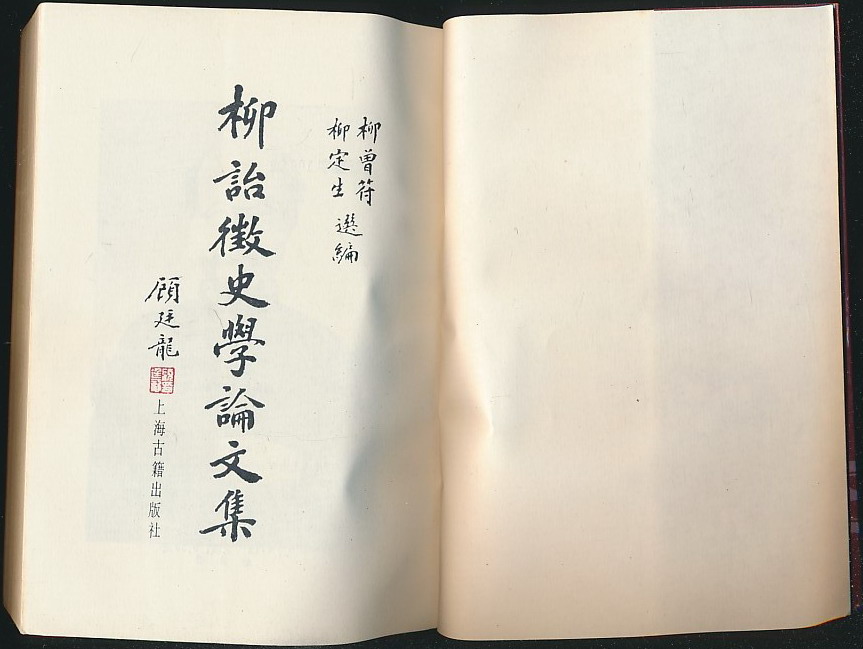 柳曾符
柳定生 選編
柳詒徵史學論文集
顧廷龍
上海古籍出版社